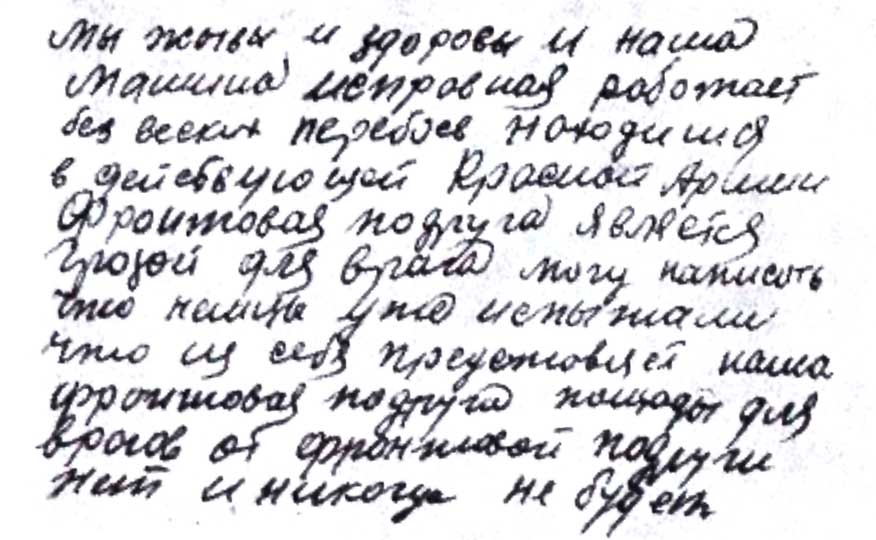 Мы живы и здоровы и наша
Машина исправная работает
без всяких перебоев находимся
в действующей Красной Армии
Фронтовая подруга является
грозой для врага могу написать
что немцы уже испытали
что из себя представляет наша
фронтовая подруга пощады для
врагов от фронтовой подруги
нет и никогда не будет